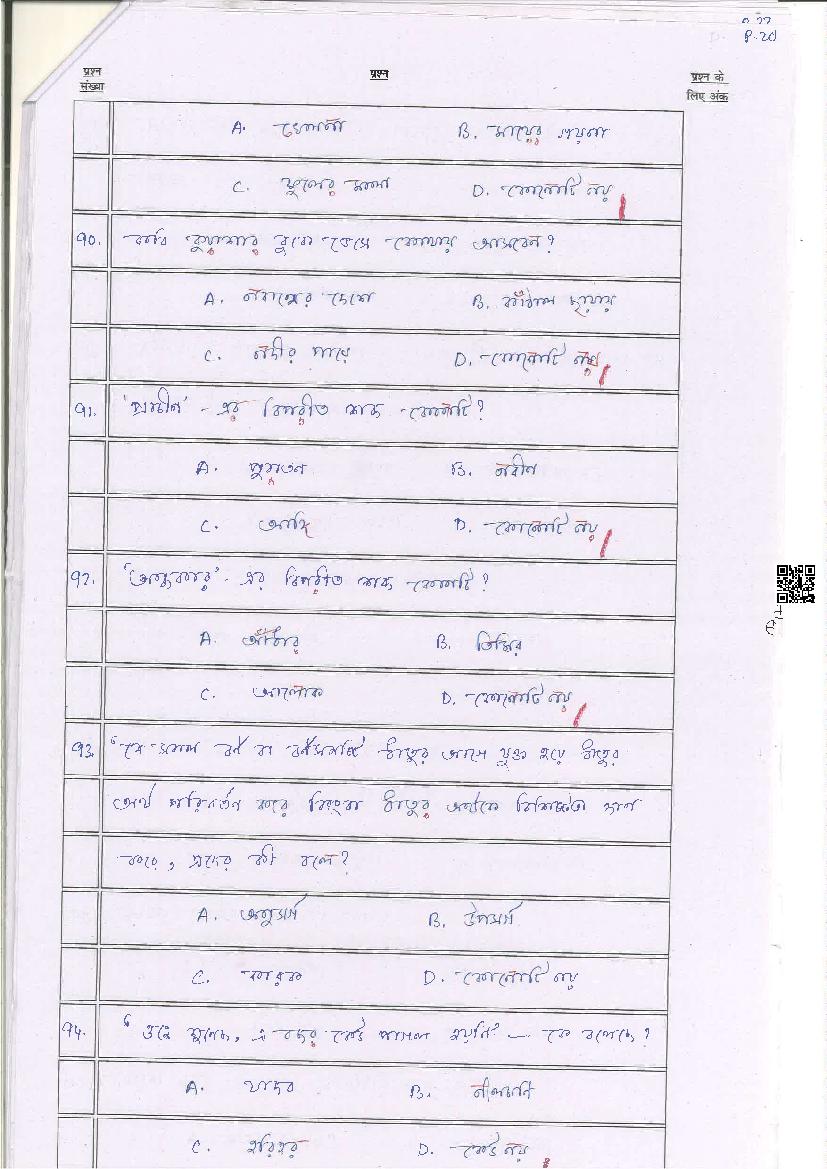 P-20
प्रश्न संख्या
प्रश्न
प्रश्न के लिए अंक
A. খেলনা B. মায়ের গয়না
C. ফুলের মালা D. কোনোটি নয়
90. কবি কুয়াশার বুকে ভেসে কোথায় আসবেন?
A. নবান্নের দেশে B. কাঁঠাল ছায়ায়
C. নদীর পারে D. কোনোটি নয়
91. 'প্রাচীন' - এর বিপরীত শব্দ কোনটি?
A. পুরাতন B. নবীন
C. আদি D. কোনোটি নয়
92. 'অন্ধকার' - এর বিপরীত শব্দ কোনটি?
A. আঁধার B. তিমির
C. আলোক D. কোনোটি নয়
93. যে সকল বর্ণ বা বর্ণসমষ্টি ধাতুর আগে যুক্ত হয়ে ধাতুর
অর্থ পরিবর্তন করে কিংবা ধাতুর অর্থকে বিশিষ্টতা দান
করে, এদের কী বলে?
A. অনুসর্গ B. উপসর্গ
C. কারক D. কোনোটি নয়
94. এ বছর কেউ পাগল হয়নি" — কে বলেছে?
A. যাদব B. নীলমণি
C. হরিহর D. কেউ নয়